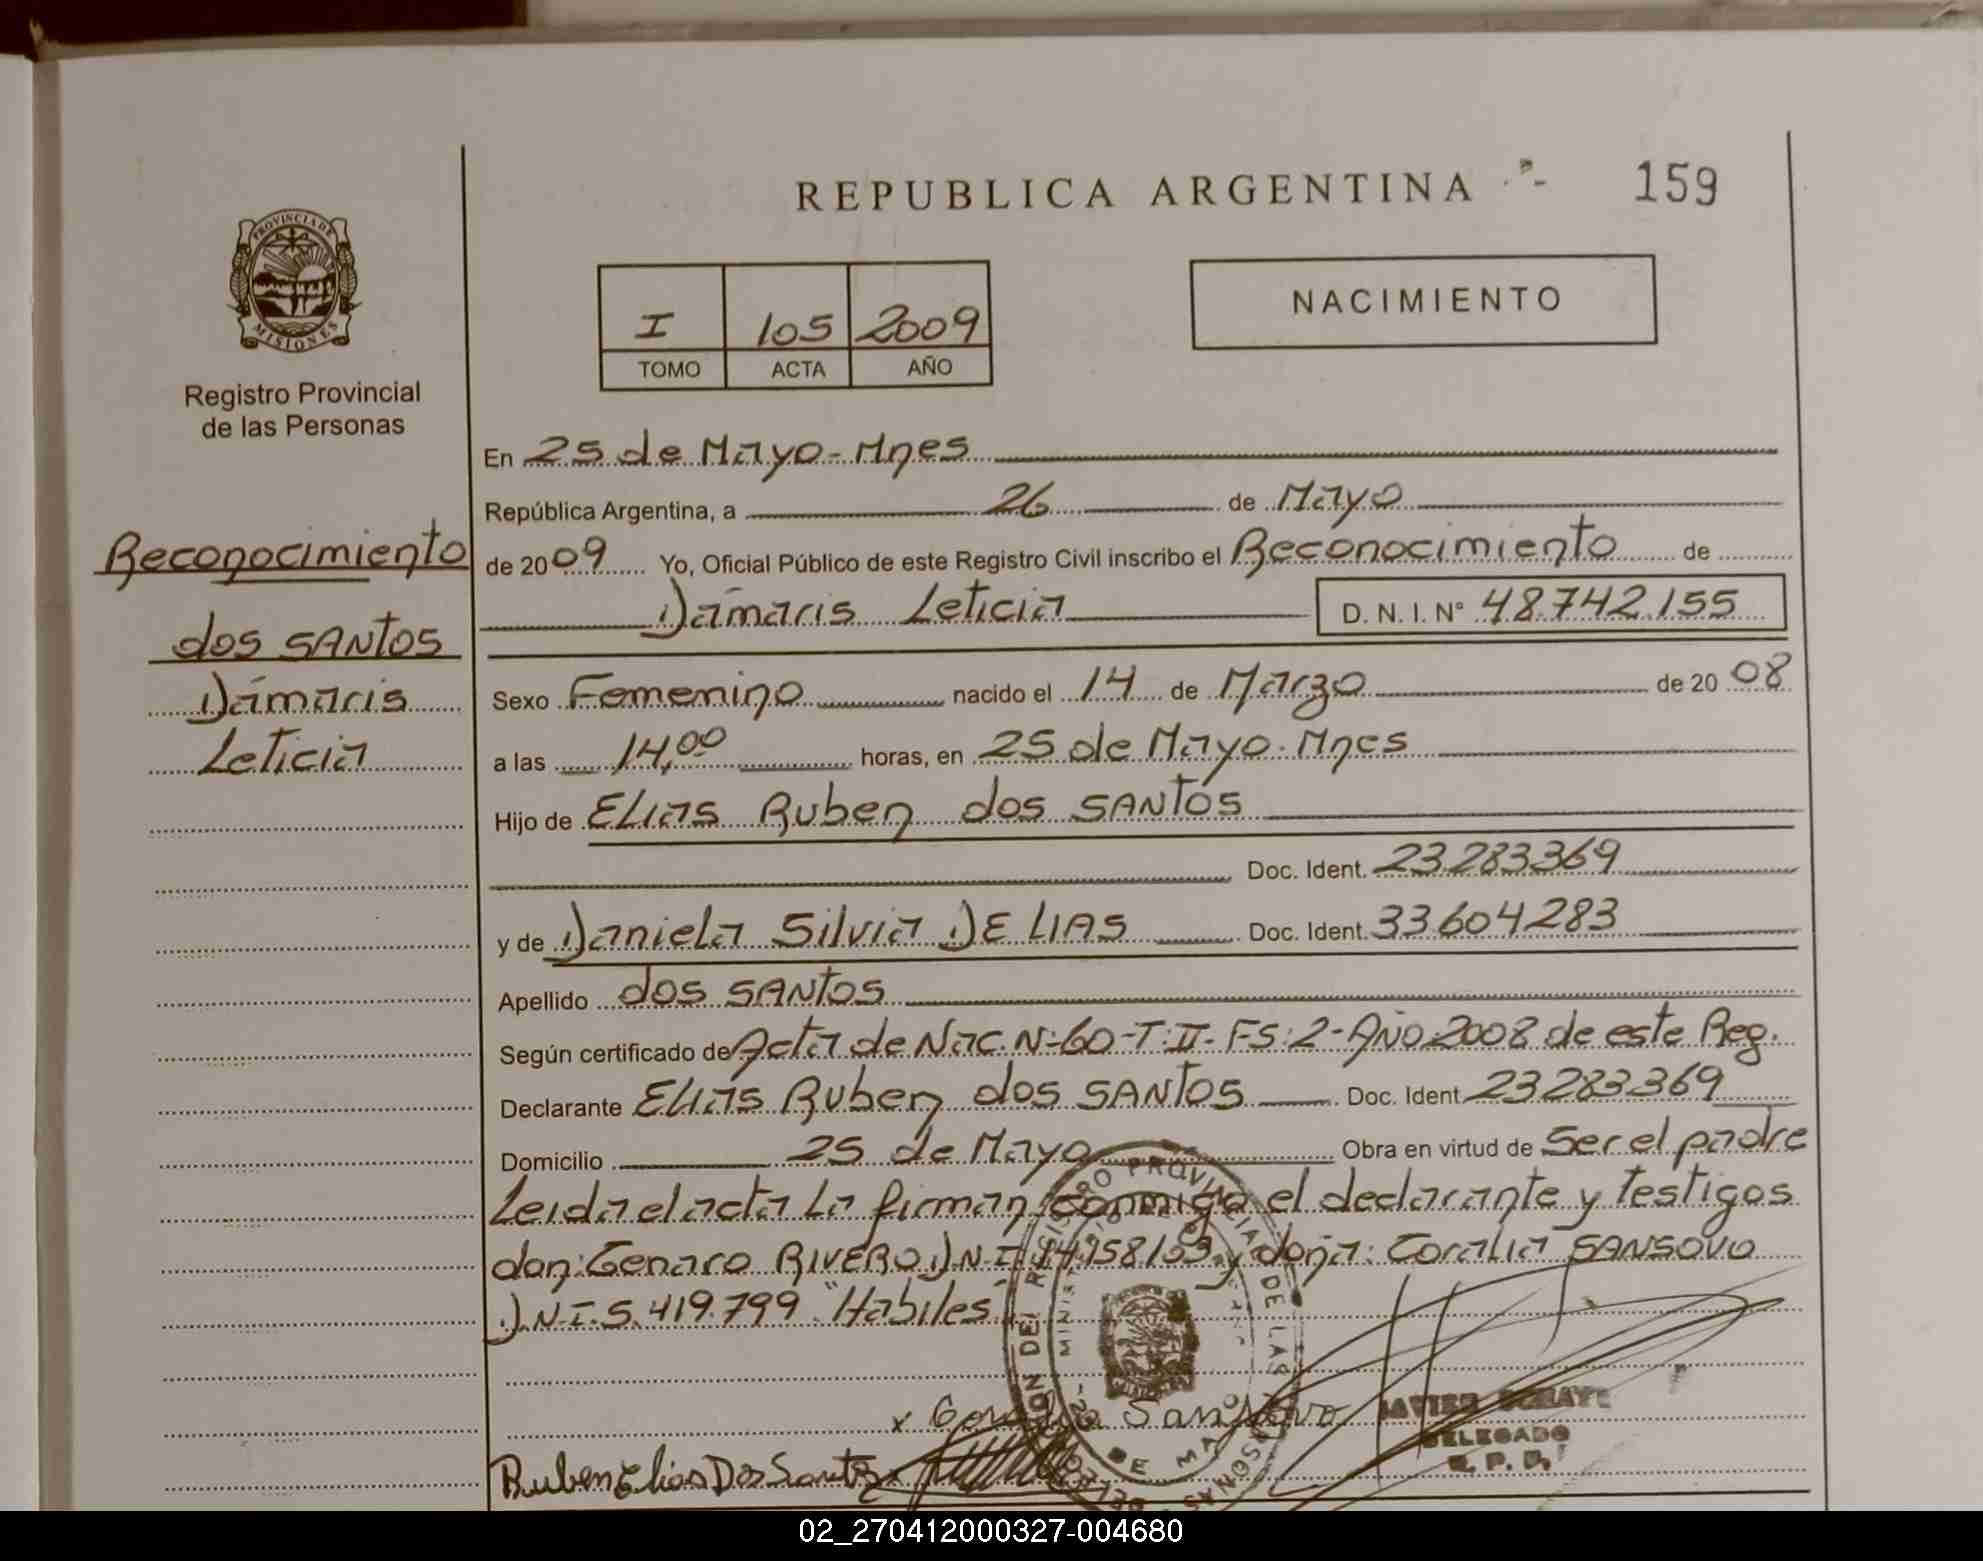 REPUBLICA ARGENTINA
159
PROVINCIA DE
MISIONES
Registro Provincial
de las Personas
I 105 2009
TOMO ACTA AÑO
NACIMIENTO
Reconocimiento
dos SANTOS
Dámaris
Leticia
En 25 de Mayo-Mnes
República Argentina, a 26 de Mayo
de 2009 Yo, Oficial Público de este Registro Civil inscribo el Reconocimiento de
Dámaris Leticia D. N. I. N° 48.742.155
Sexo Femenino nacido el 14 de Marzo de 2008
a las 14,00 horas, en 25 de Mayo-Mnes
Hijo de Elias Ruben dos SANTOS
Doc. Ident. 23.283.369
y de Daniela Silvia DE LIAS Doc. Ident. 33604283
Apellido dos SANTOS
Según certificado de Acta de Nac. N:60-T:II-FS:2-AÑO:2008 de este Reg.
Declarante Elias Ruben dos SANTOS Doc. Ident. 23283369
Domicilio 25 de Mayo Obra en virtud de Ser el padre
Leida el acta La firman conmigo el declarante y testigos
don: Genaro RIVERO D.N.I. y doña: Coralia SANSOVO
D.N.I. 5.419.799 "Habiles"
Sansovo
DELEGADO
Ruben Elias Dos Santos
02_270412000327-004680